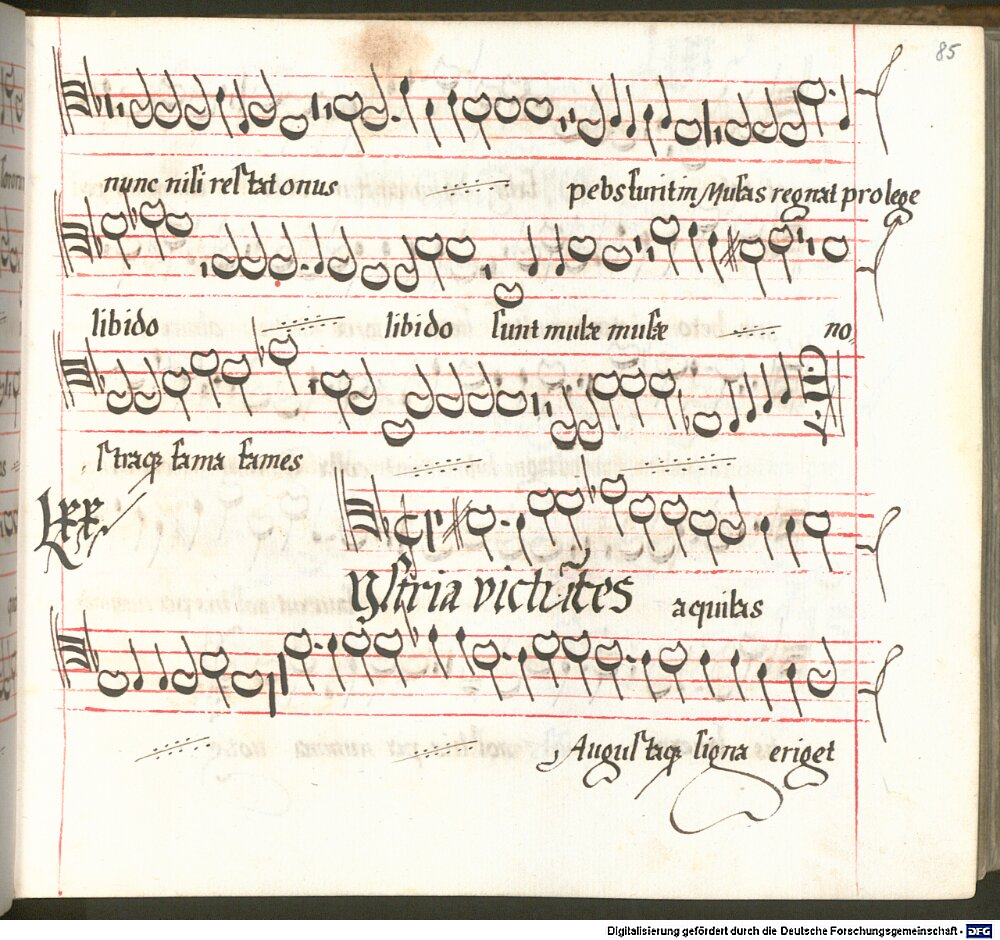 85
nunc nisi restat onus pebs surit in Musas regnat pro lege
libido libido sunt mutæ musæ no
straq fama fames
LXX.
Ystria victrices aquilas
Augustaq signa eriget
Digitalisierung gefördert durch die Deutsche Forschungsgemeinschaft - DFG